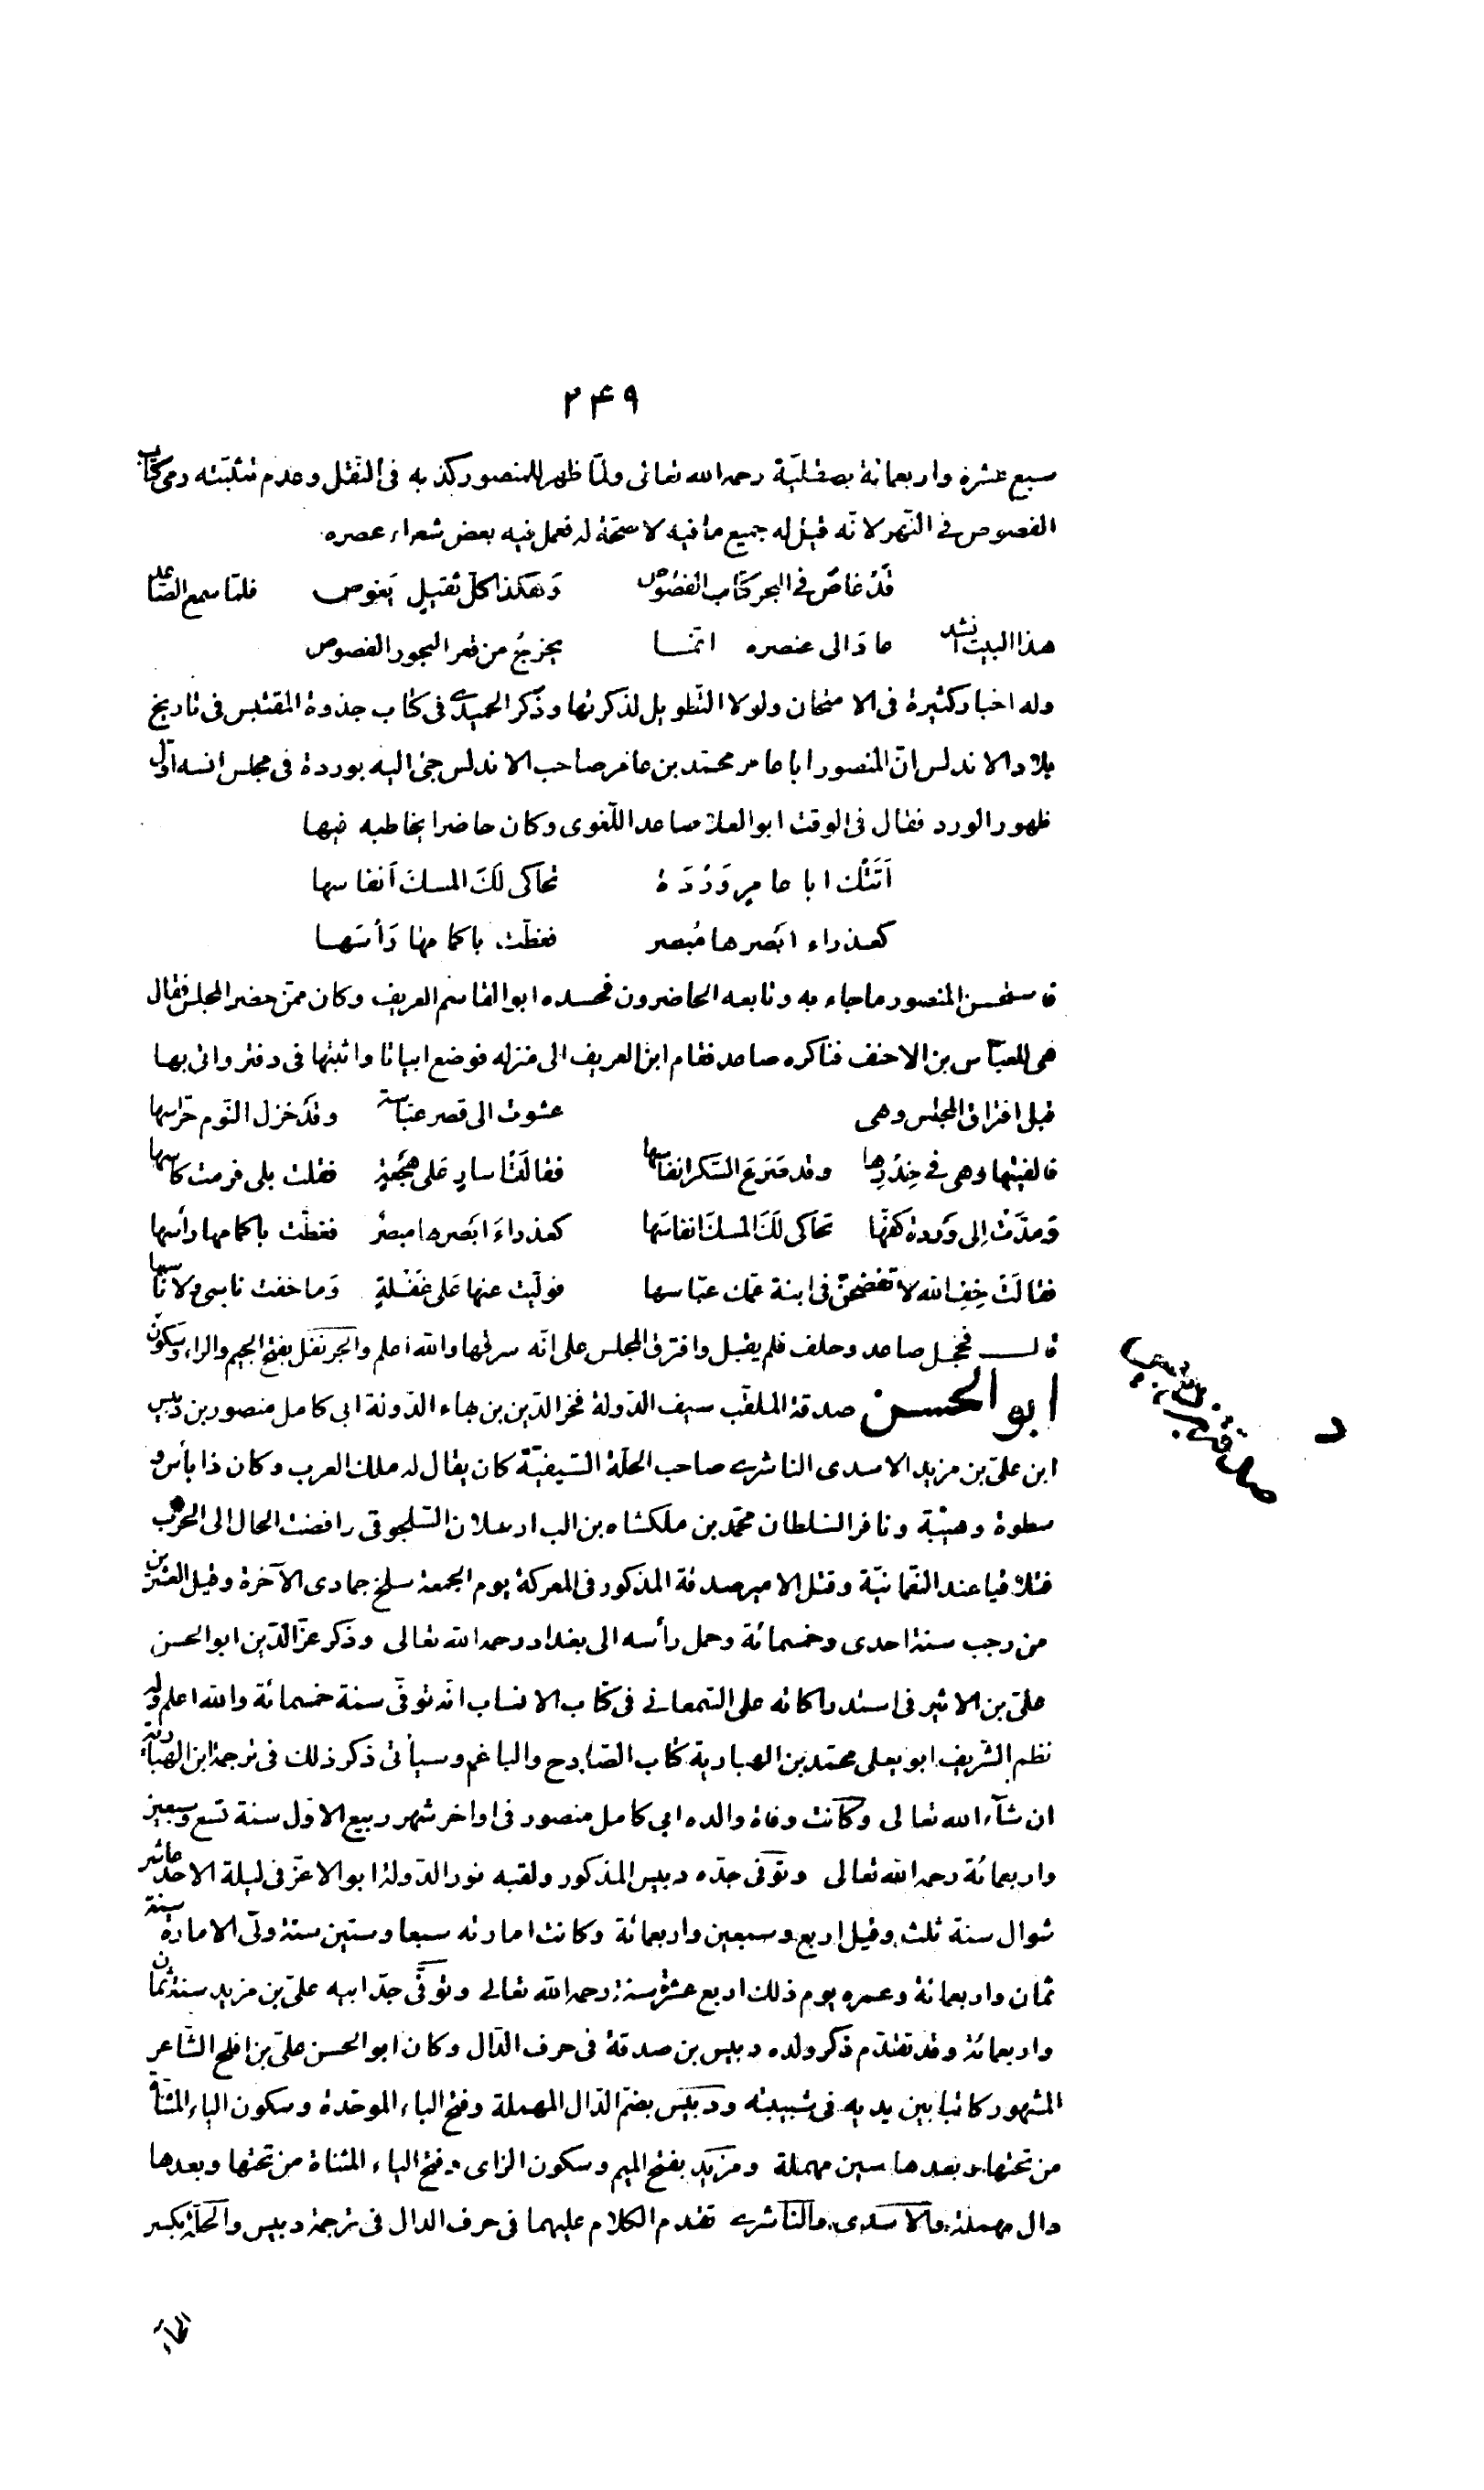 ۲۴۹
سبع عشرة واربعمائة بصقلیّة رحمه الله تعالی ولمّا ظهر للمنصور کذبه فی النّقل وعدم تثبّته رمی کتاب
الفصوص فی النّهر لانّه قیل له جمیع ما فیه لا صحّة له فعمل فیه بعض شعراء عصره
قَدْ غاصَ فی البحر کتاب الفصُوص وَهَکذا کلّ ثقیلٍ یَغوص فلمّا سمع الصّاعد
هذا البیت انشد عادَ الی عنصره انّمـا یخرجُ من قعر البحور الفصوص
وله اخبار کثیرة فی الامتحان ولولا التّطویل لذکرتها وذکر الحمیدی فی کتاب جذوة المقتبس فی تاریخ
بلاد الاندلس انّ المنصور ابا عامر محمّد بن عامر صاحب الاندلس جیٔ الیه بوردة فی مجلس انسه اوّل
ظهور الورد فقال فی الوقت ابو العلا صاعد اللّغوی وکان حاضرا یخاطبه فیها
اَتَتْک ابا عامرٍ وَرْدَة تحاکی لَکَ المسکَ اَنفاسها
کعـذراء ابصرها مُبصر فغطّت باکمامها رَأسَهـا
فاستحسن المنصور ما جاء به وتابعه الحاضرون فحسده ابو القاسم العریف وکان ممّن حضر المجلس فقال
هی للعبّاس بن الاحنف فناکره صاعد فقام ابن العریف الی منزله فوضع ابیاتا واثبتها فی دفتر واتی بها
قبل افتراق المجلس وهی عشوت الی قصر عبّاسة وقد خزل النّوم حرّاسها
فالفیتها وهی فی خِدْرِها وقد صَرَعَ السّکر انفاسها فقالت أسارٍ عَلی هَجْعَةٍ فقلت بلی فرمت کاسها
وَمدّتْ اِلی وَردة کفّها تحاکی لَکَ المسکَ انفاسَها کعذراءَ ابصرها مبصرٌ فغطّت باکمامها رأسها
فقالَتْ خِفِ الله لا تفضحنّ فی ابنة عمّک عبّاسها فولّیت عنها عَلی غَفْلةٍ وَما خفت ناسی ولا ناسها
قالـــ فخجل صاعد وحلف فلم یقبل وافترق المجلس علی انّه سرقها والله اعلم والجرنفل بفتح الجیم والراء وسکون
ابو الحسن صدقة الملقّب سیف الدّولة فخر الدّین بن بهاء الدّولة ابی کامل منصور بن دبیس
ابن علیّ بن مزید الاسدی الناشری صاحب الحلّة السّیفیّة کان یقال له ملک العرب وکان ذا بأس و
سطوة وهیبة ونافر السّلطان محمّد بن ملکشاه بن الب ارسلان السّلجوقی وافضت الحال الی الحرب
فتلاقیا عند النعمانیّة وقتل الامیر صدقة المذکور فی المعرکة یوم الجمعة سلخ جمادی الآخرة وقیل العشرین
من رجب سنة احدی وخمسمائة وحمل رأسه الی بغداد رحمه الله تعالی وذکر عزّ الدّین ابو الحسن
علیّ بن الاثیر فی استدراکاته علی السّمعانی فی کتاب الانساب انّه توفّی سنة خمسمائة والله اعلم وله
نظم الشّریف ابو یعلی محمّد بن الهباریة کتاب الصّادح والباغم وسیأتی ذکر ذلک فی ترجمة ابن الهباریة
ان شآء الله تعالی وکانت وفاة والده ابی کامل منصور فی اواخر شهر ربیع الاوّل سنة تسع وسبعین
واربعمائة رحمه الله تعالی وتوفّی جدّه دبیس المذکور ولقبه نور الدّولة ابو الاغرّ فی لیلة الاحد عاشر
شوال سنة ثلث وقیل اربع وسبعین واربعمائة وکانت امارته سبعا وستّین سنة ولّی الامارة سنة
ثمان واربعمائة وعمره یوم ذلک اربع عشرة سنة رحمه الله تعالی وتوفّی جدّ ابیه علیّ بن مزید سنة ثمان
واربعمائة وقد تقدّم ذکر ولده دبیس بن صدقة فی حرف الدّال وکان ابو الحسن علیّ بن افلح الشّاعر
المشهور کاتبا بین یدیه فی شبیبته ودبیس بضمّ الدّال المهملة وفتح الباء الموحّدة وسکون الیاء المثنّاة
من تحتها وبعدها سین مهملة ومزید بفتح المیم وسکون الزای وفتح الیاء المثناة من تحتها وبعدها
دال مهملة والاسدی والناشری تقدم الکلام علیهما فی حرف الدال فی ترجمة دبیس والحلّة بکسر
الحاء